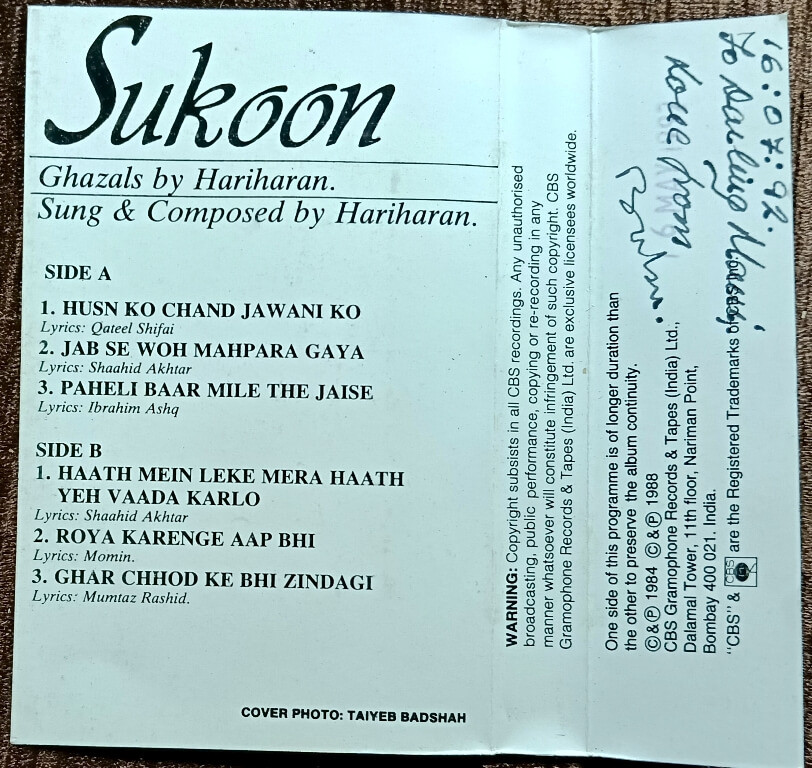 Sukoon
Ghazals by Hariharan.
Sung & Composed by Hariharan.
SIDE A
1. HUSN KO CHAND JAWANI KO
Lyrics: Qateel Shifai
2. JAB SE WOH MAHPARA GAYA
Lyrics: Shaahid Akhtar
3. PAHELI BAAR MILE THE JAISE
Lyrics: Ibrahim Ashq
SIDE B
1. HAATH MEIN LEKE MERA HAATH
YEH VAADA KARLO
Lyrics: Shaahid Akhtar
2. ROYA KARENGE AAP BHI
Lyrics: Momin.
3. GHAR CHHOD KE BHI ZINDAGI
Lyrics: Mumtaz Rashid.
COVER PHOTO: TAIYEB BADSHAH
WARNING: Copyright subsists in all CBS recordings. Any unauthorised
broadcasting, public performance, copying or re-recording in any
manner whatsoever will constitute infringement of such copyright. CBS
Gramophone Records & Tapes (India) Ltd. are exclusive licensees worldwide.
One side of this programme is of longer duration than
the other to preserve the album continuity.
©&℗ 1984 ©&℗ 1988
CBS Gramophone Records & Tapes (India) Ltd.,
Dalamal Tower, 11th floor, Nariman Point,
Bombay 400 021. India.
"CBS" & CBS are the Registered Trademarks of
16:07:92.
To Darling
Love from